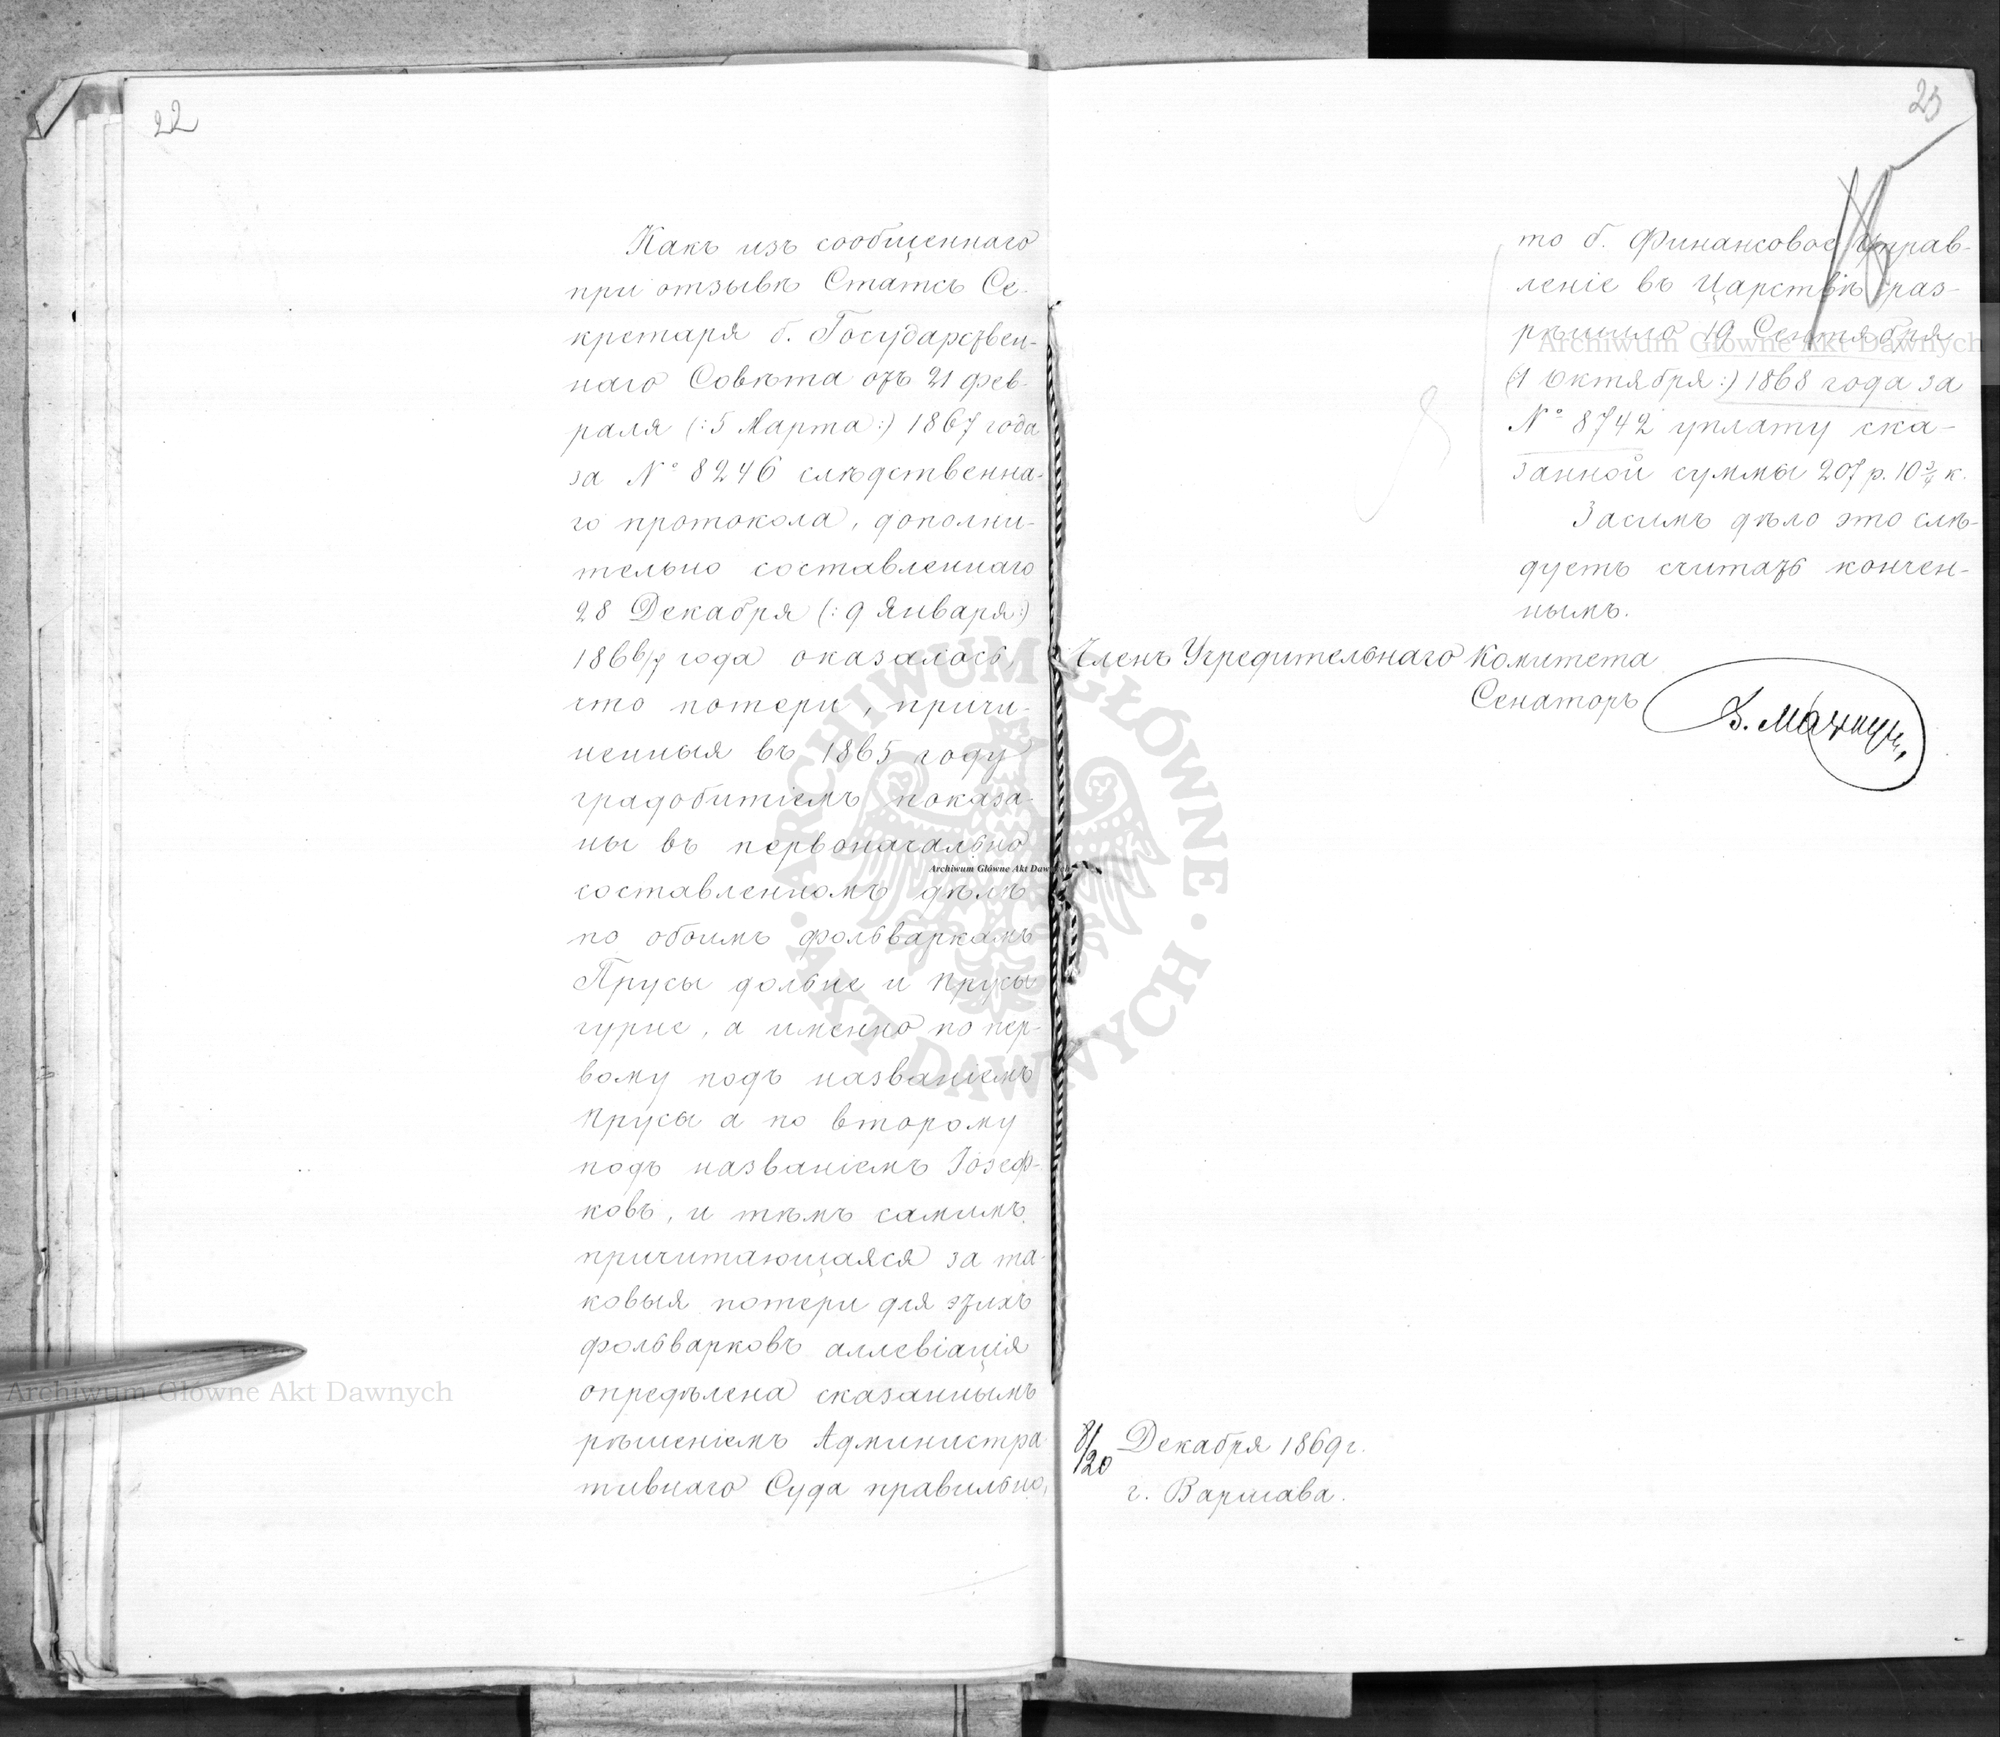 22
Какъ изъ сообщеннаго
при отзывѣ Статсъ Се-
кретаря б. Государствен-
наго Совѣта отъ 21 фев-
раля (:5 Марта:) 1867 года
за № 8246 слѣдственна-
го протокола, дополни-
тельно составленнаго
28 Декабря (:9 Января:)
1866/7 года оказалось,
что потери, причи-
ненныя въ 1865 году
градобитіемъ показа-
ны въ первоначально
составленномъ дѣлѣ
по обоимъ фольваркамъ
Прусы дольне и Прусы
гурне, а именно по пер-
вому подъ названіемъ
Прусы а по второму
подъ названіемъ Іозеф-
ковъ, и тѣмъ самимъ
причитающаяся за та-
ковыя потери для этихъ
фольварковъ аллевіація
опредѣлена сказаннымъ
рѣшеніемъ Администра
тивнаго Суда правильно,
23
то б. Финансовое Управ-
леніе въ Царствѣ раз-
рѣшило 19 Сентября
(:1 Октября:) 1868 года за
№ 8742 уплату ска-
занной суммы 207 р. 10 3/4 к.
Засимъ дѣло это слѣ-
дуетъ считать кончен-
нымъ.
Членъ Учредительнаго Комитета
Сенаторъ
8/20 Декабря 1869 г.
г. Варшава.
Archiwum Główne Akt Dawnych
Archiwum Główne Akt Dawnych
Archiwum Główne Akt Dawnych
ARCHIWUM GŁÓWNE AKT DAWNYCH